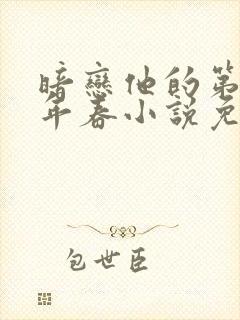 暗戀他的第
年春小說免
包世臣